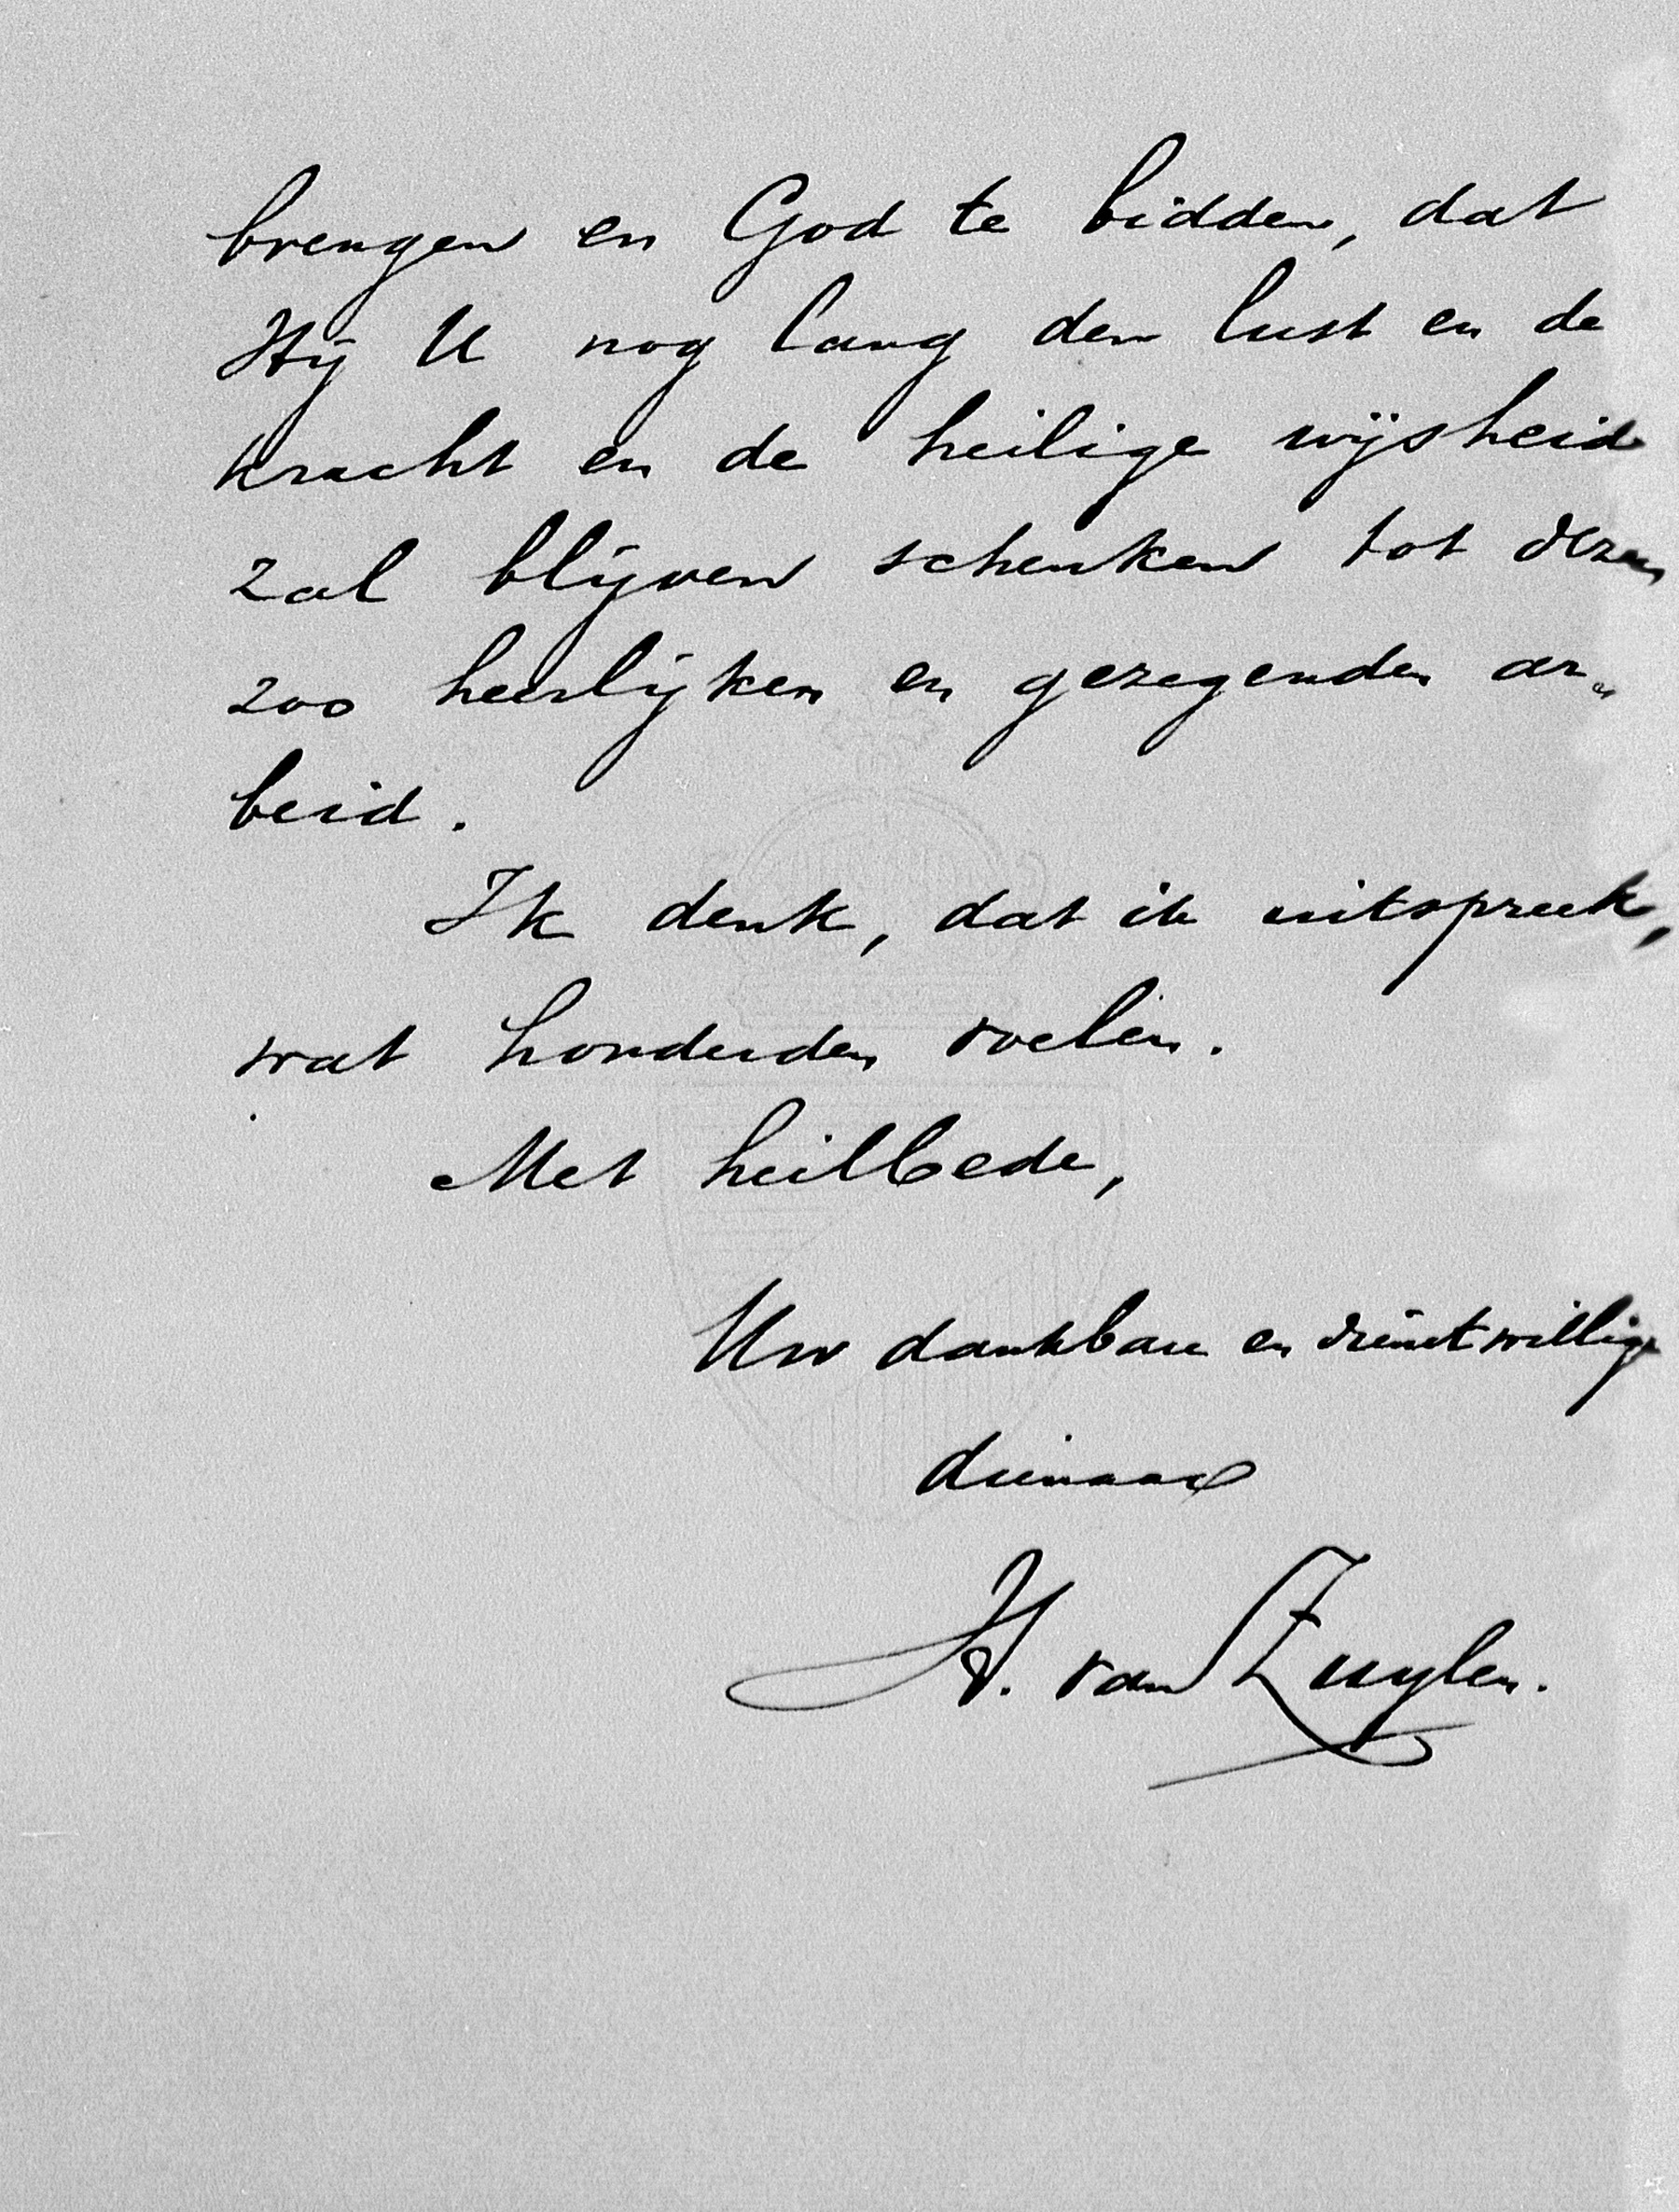 brengen en God te bidden, dat
Hij U nog lang den lust en de
kracht en de heilige wijsheid
zal blijven schenken tot dezen
zoo heerlijken en gezegenden ar-
beid.
Ik denk, dat ik uitspreek,
wat honderden voelen.
Met heilbede,
Uw dankbare en dienstwillige
dienaar
H. van Zuylen.